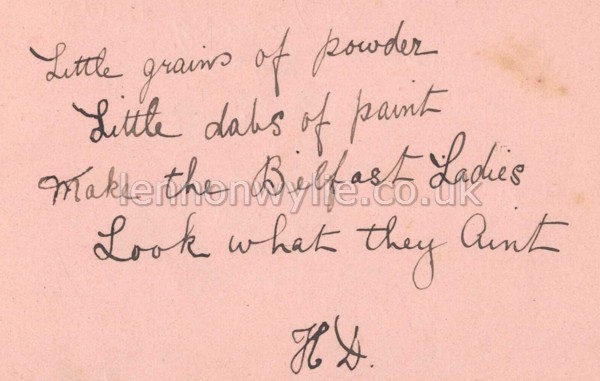 Little grains of powder
Little dabs of paint
Make the Belfast Ladies
lennonwylie.co.uk
Look what they Aint
H D.